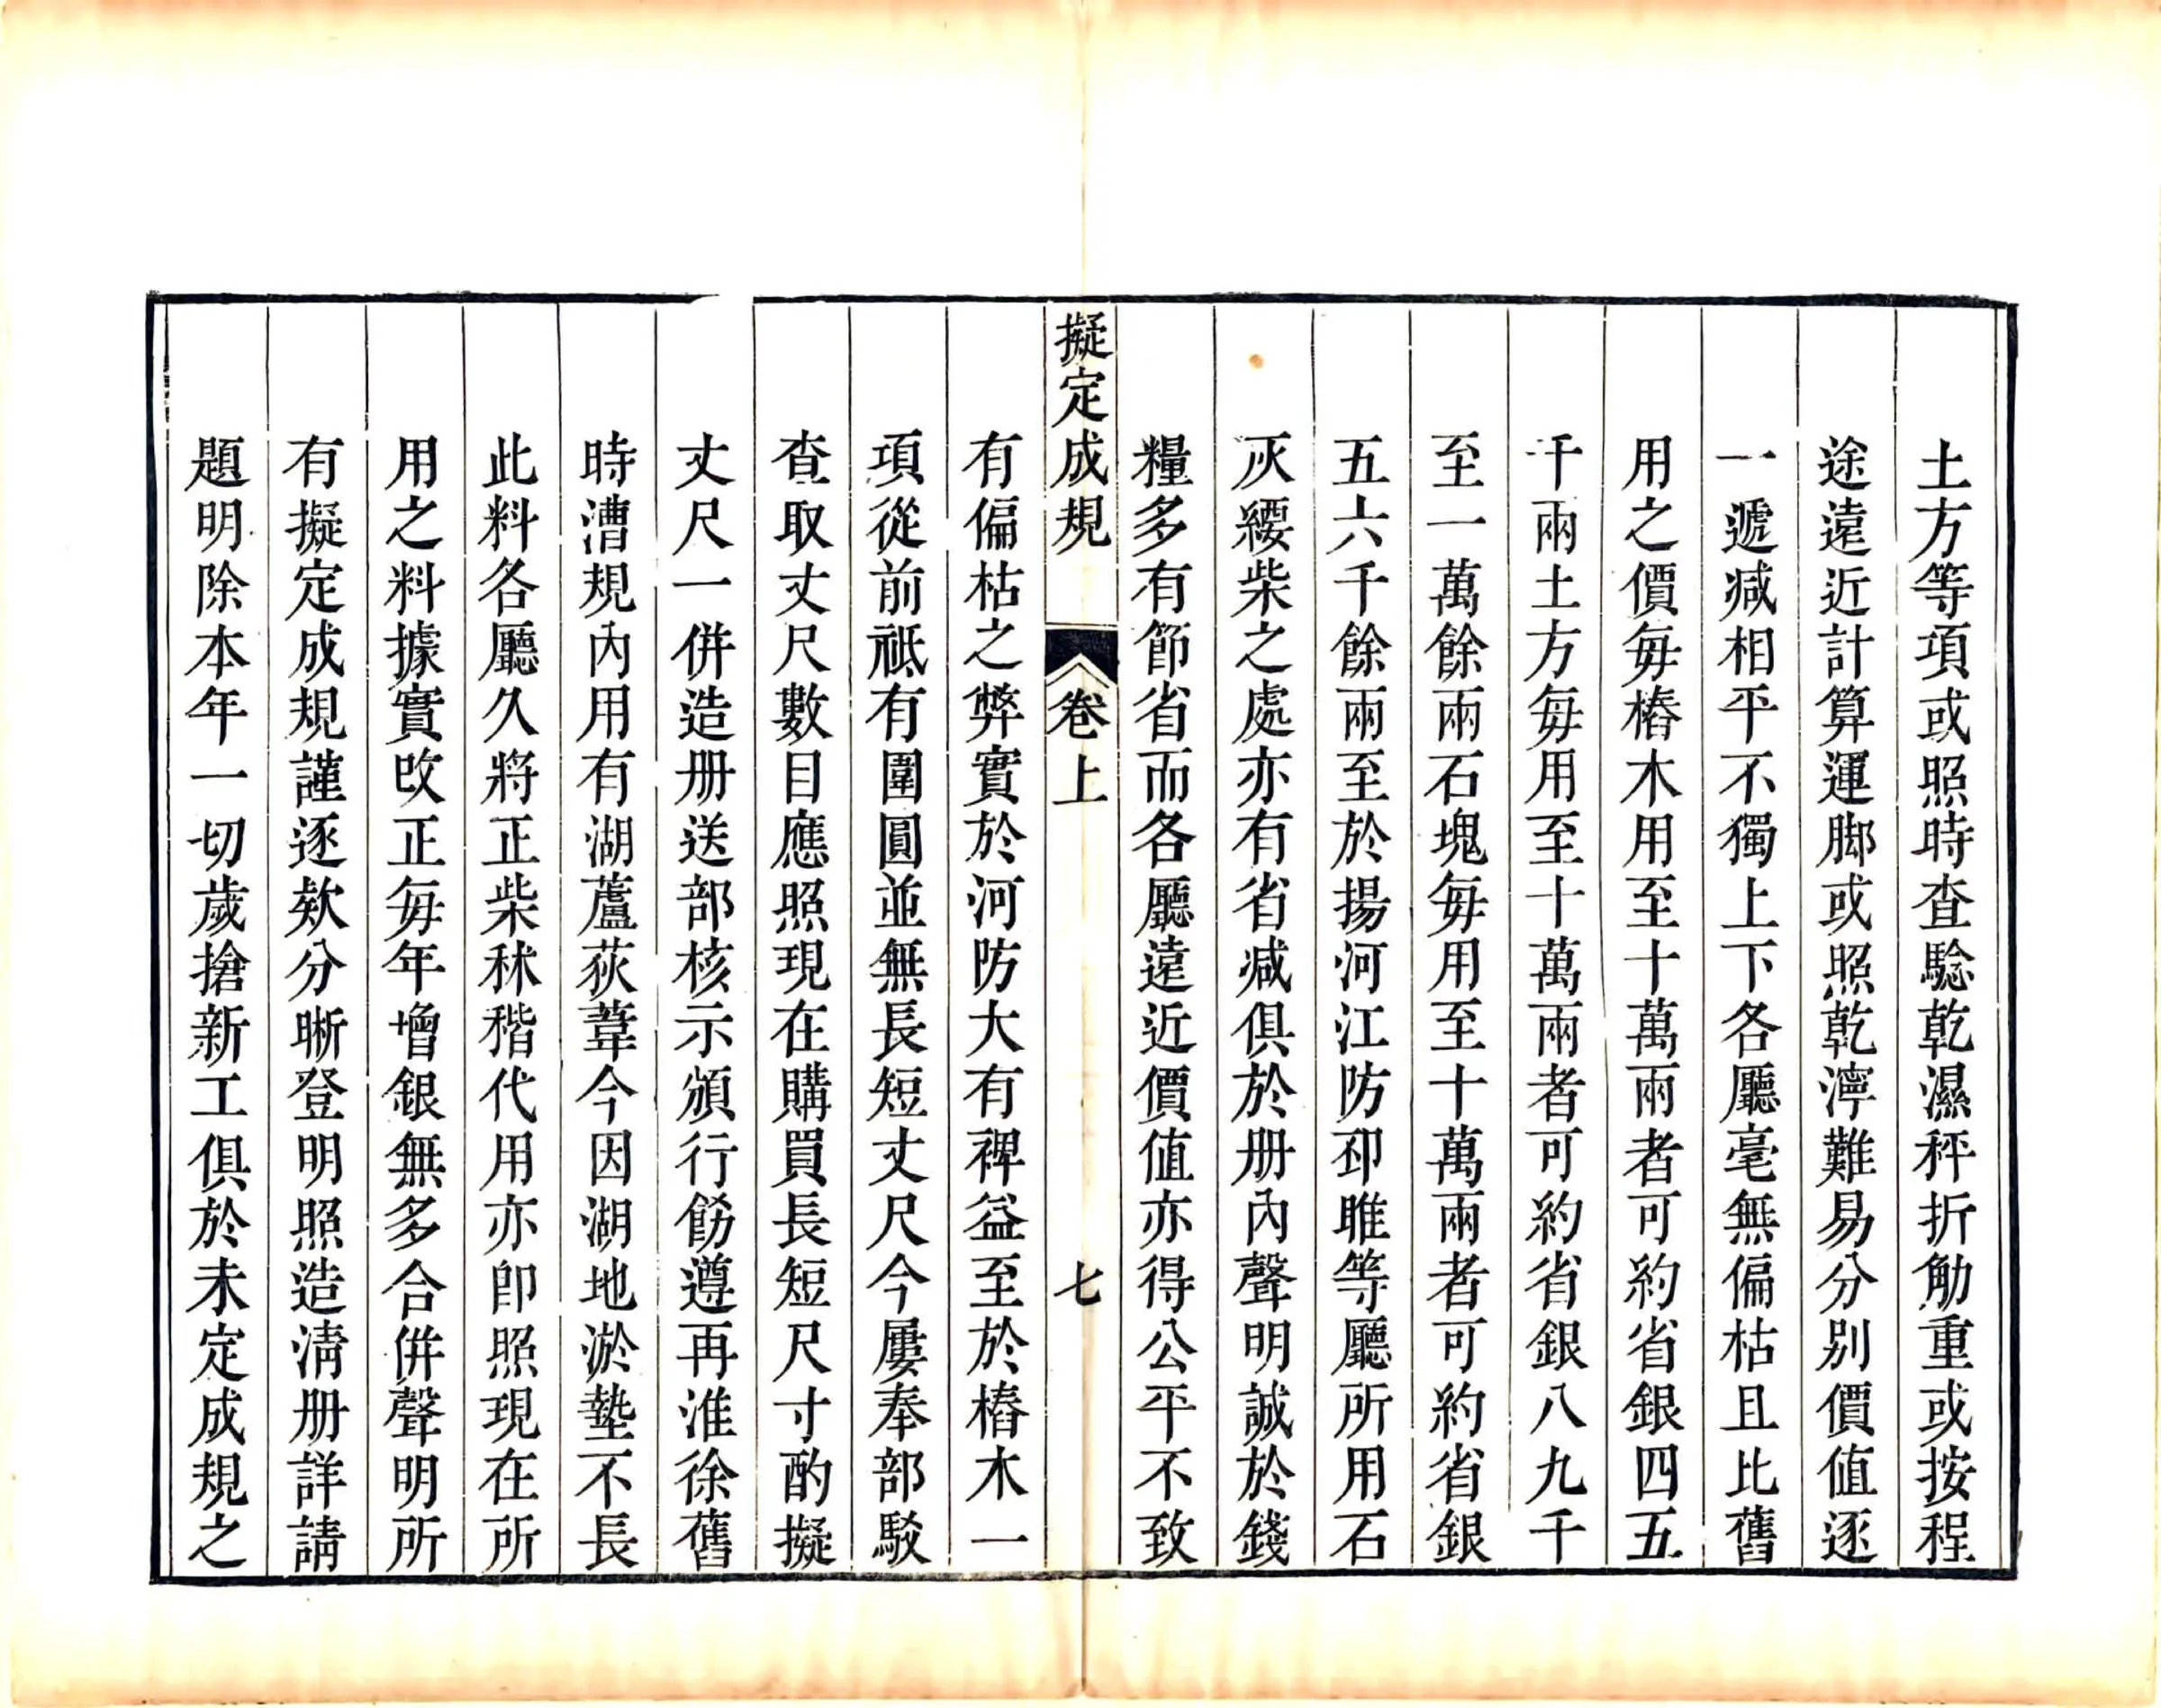 土方等項或照時查驗乾濕秤折觔重或按程
途遠近計算運脚或照乾濘難易分別價值逐
一遞减相平不獨上下各廳毫無偏枯且比舊
用之價每樁木用至十萬兩者可約省銀四五
千兩土方每用至十萬兩者可約省銀八九千
至一萬餘兩石塊每用至十萬兩者可約省銀
五六千餘兩至於揚河江防邳睢等廳所用石
灰緩柴之處亦有省减俱於册內聲明誠於錢
糧多有節省而各廳遠近價值亦得公平不致
擬定成規 卷上 七
有偏枯之弊實於河防大有裨益至於樁木一
項從前祗有圍圓並無長短丈尺今屢奉部駁
查取丈尺數目應照現在購買長短尺寸酌擬
丈尺一併造册送部核示頒行飭遵再淮徐舊
時漕規內用有湖蘆荻葦今因湖地淤墊不長
此料各廳久將正柴秫稭代用亦卽照現在所
用之料據實改正每年增銀無多合併聲明所
有擬定成規謹逐欵分晰登明照造淸册詳請
題明除本年一切歲搶新工俱於未定成規之